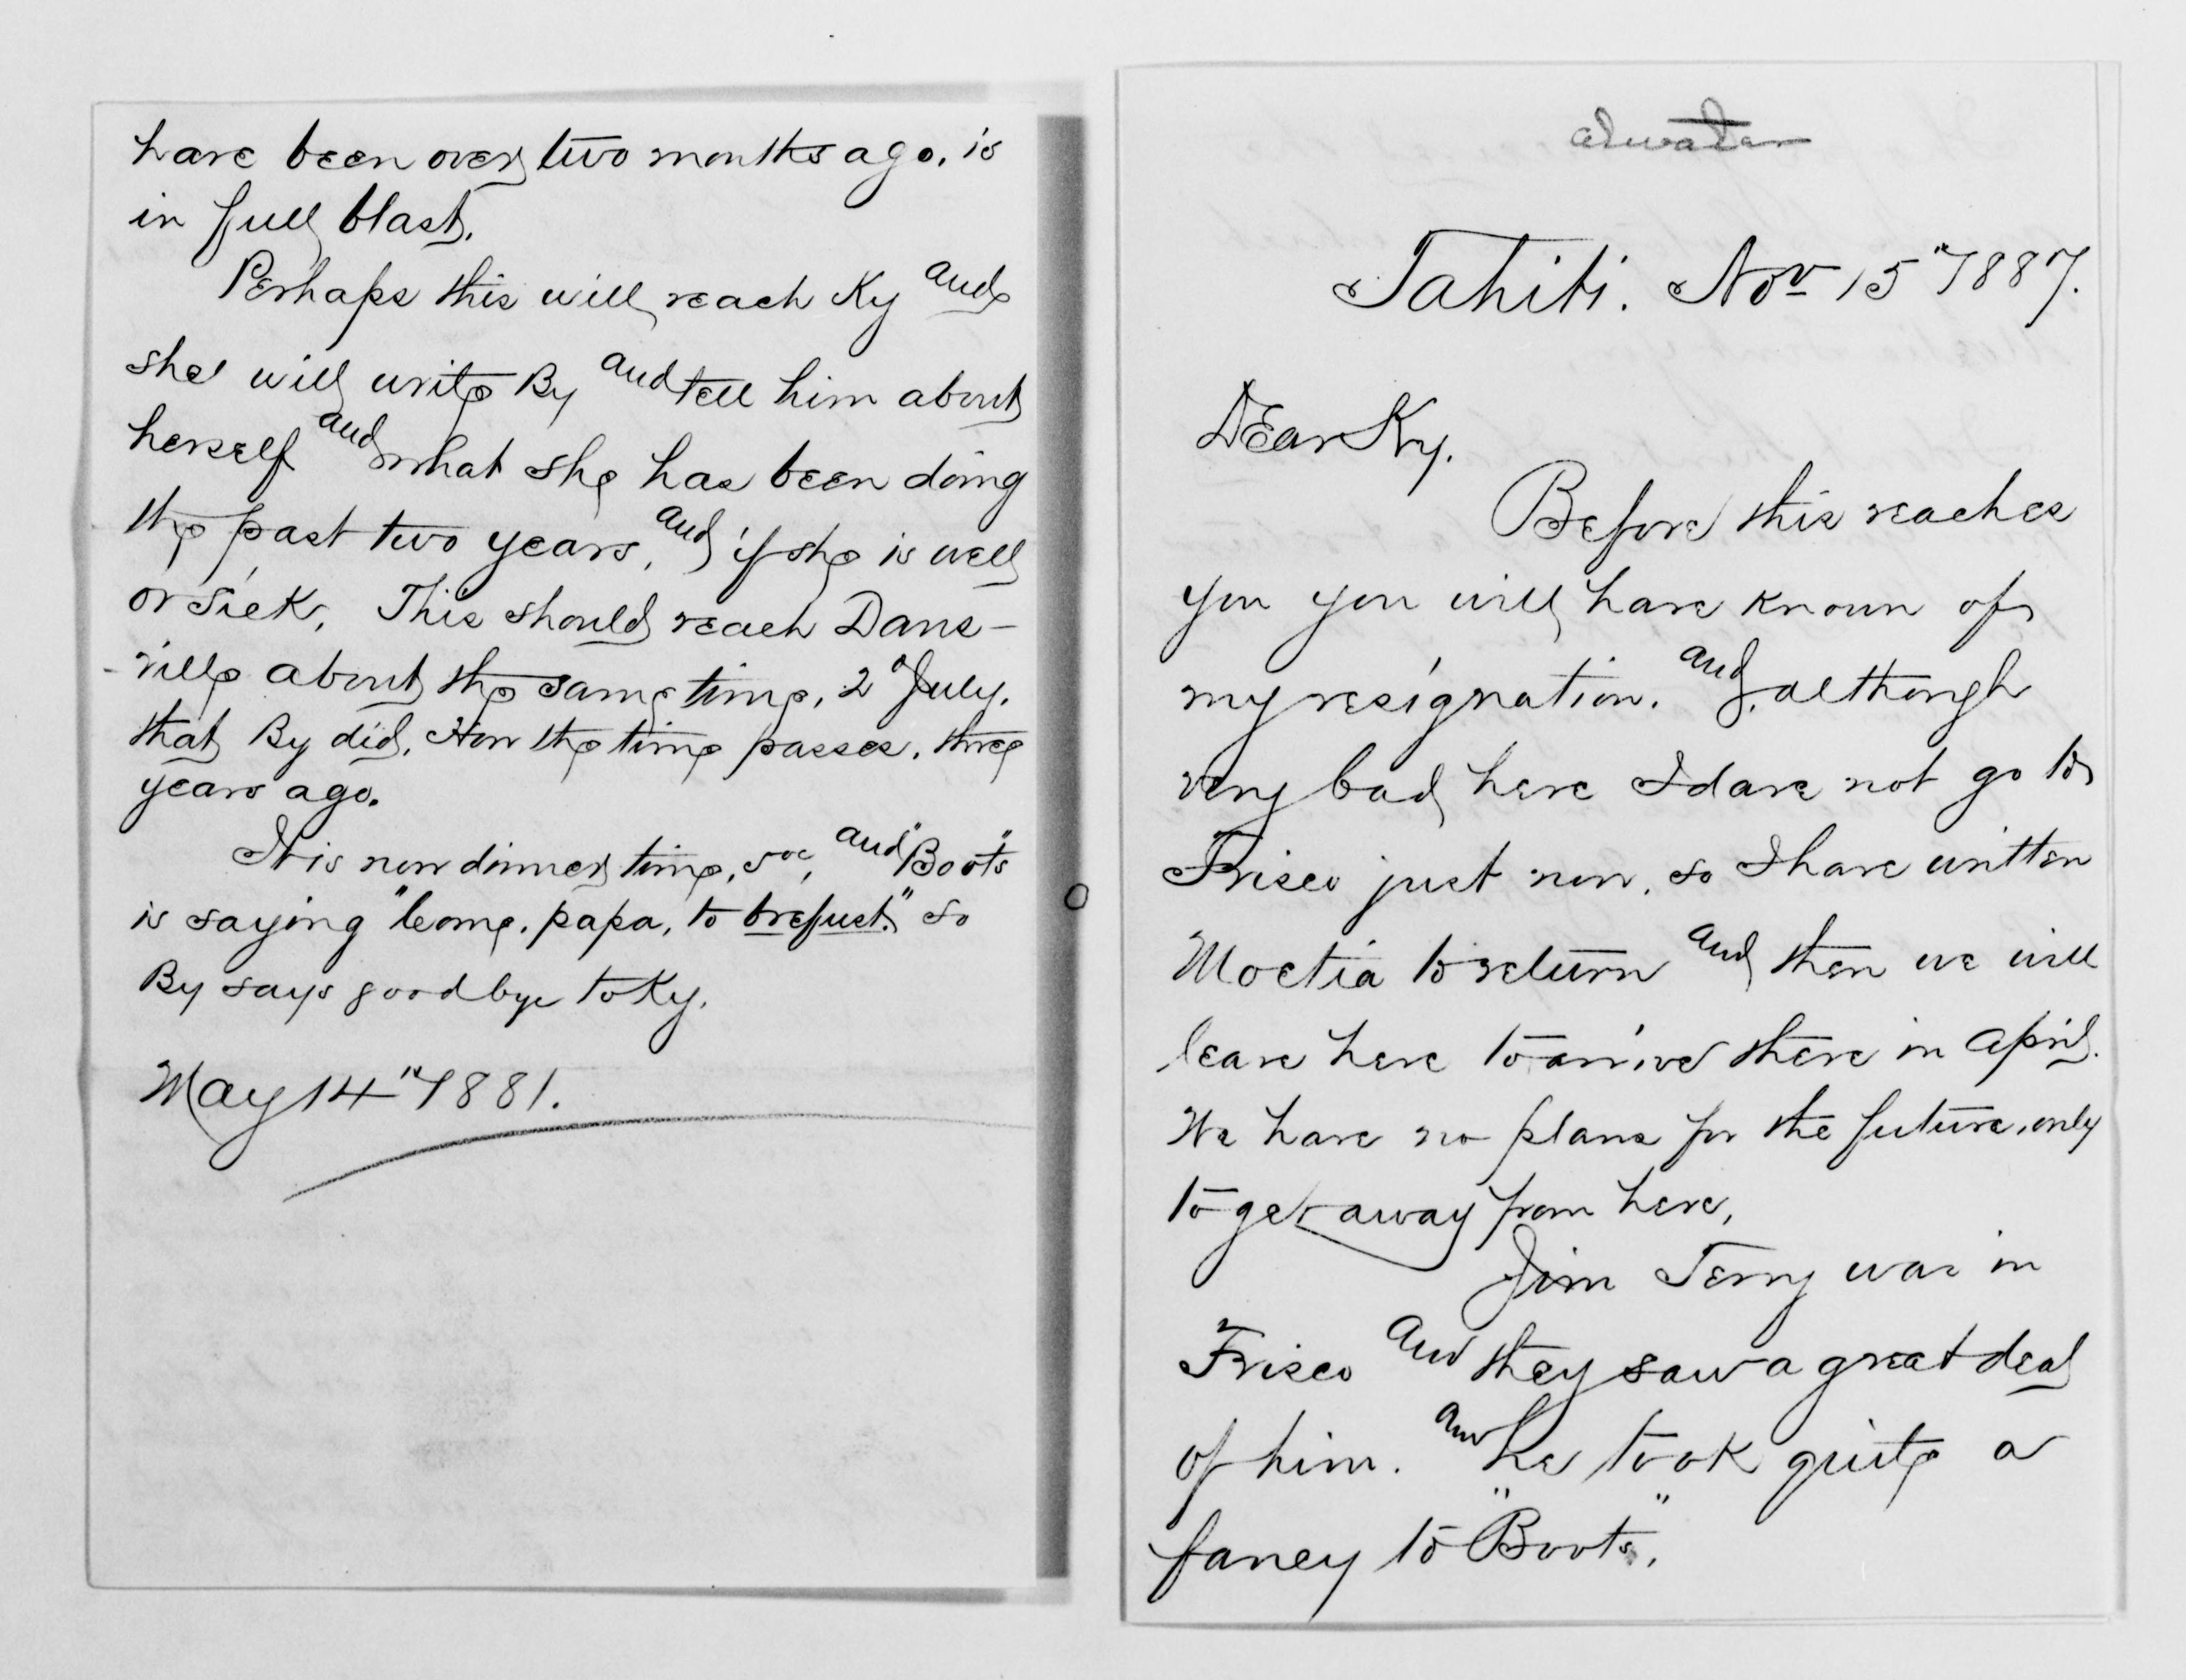 have been over two months ago. is
in full blast.
Perhaps this will reach Ky and
she will write By and tell him about
herself and what she has been doing
the past two years, and if she is well
or sick. This should reach Dans-
-ville about the same time, 2d July.
that By did. How the time passes. three
years ago.
It is now dinner time, 5oc, and "Boots"
is saying "Come, papa, to brefust." So
By says goodbye to Ky.
May 14" 1881.
atwater
Tahiti. Nov 15" 1887.
Dear Ky.
Before this reaches
you you will have known of
my resignation. and, although
very bad here I dare not go to
Frisco just now, so I have written
Moetia to return and then we will
leave here to arrive there in April.
We have no plans for the future, only
to get away from here,
Jim Terry was in
Frisco and they saw a great deal
of him. and he took quite a
fancy to "Boots".